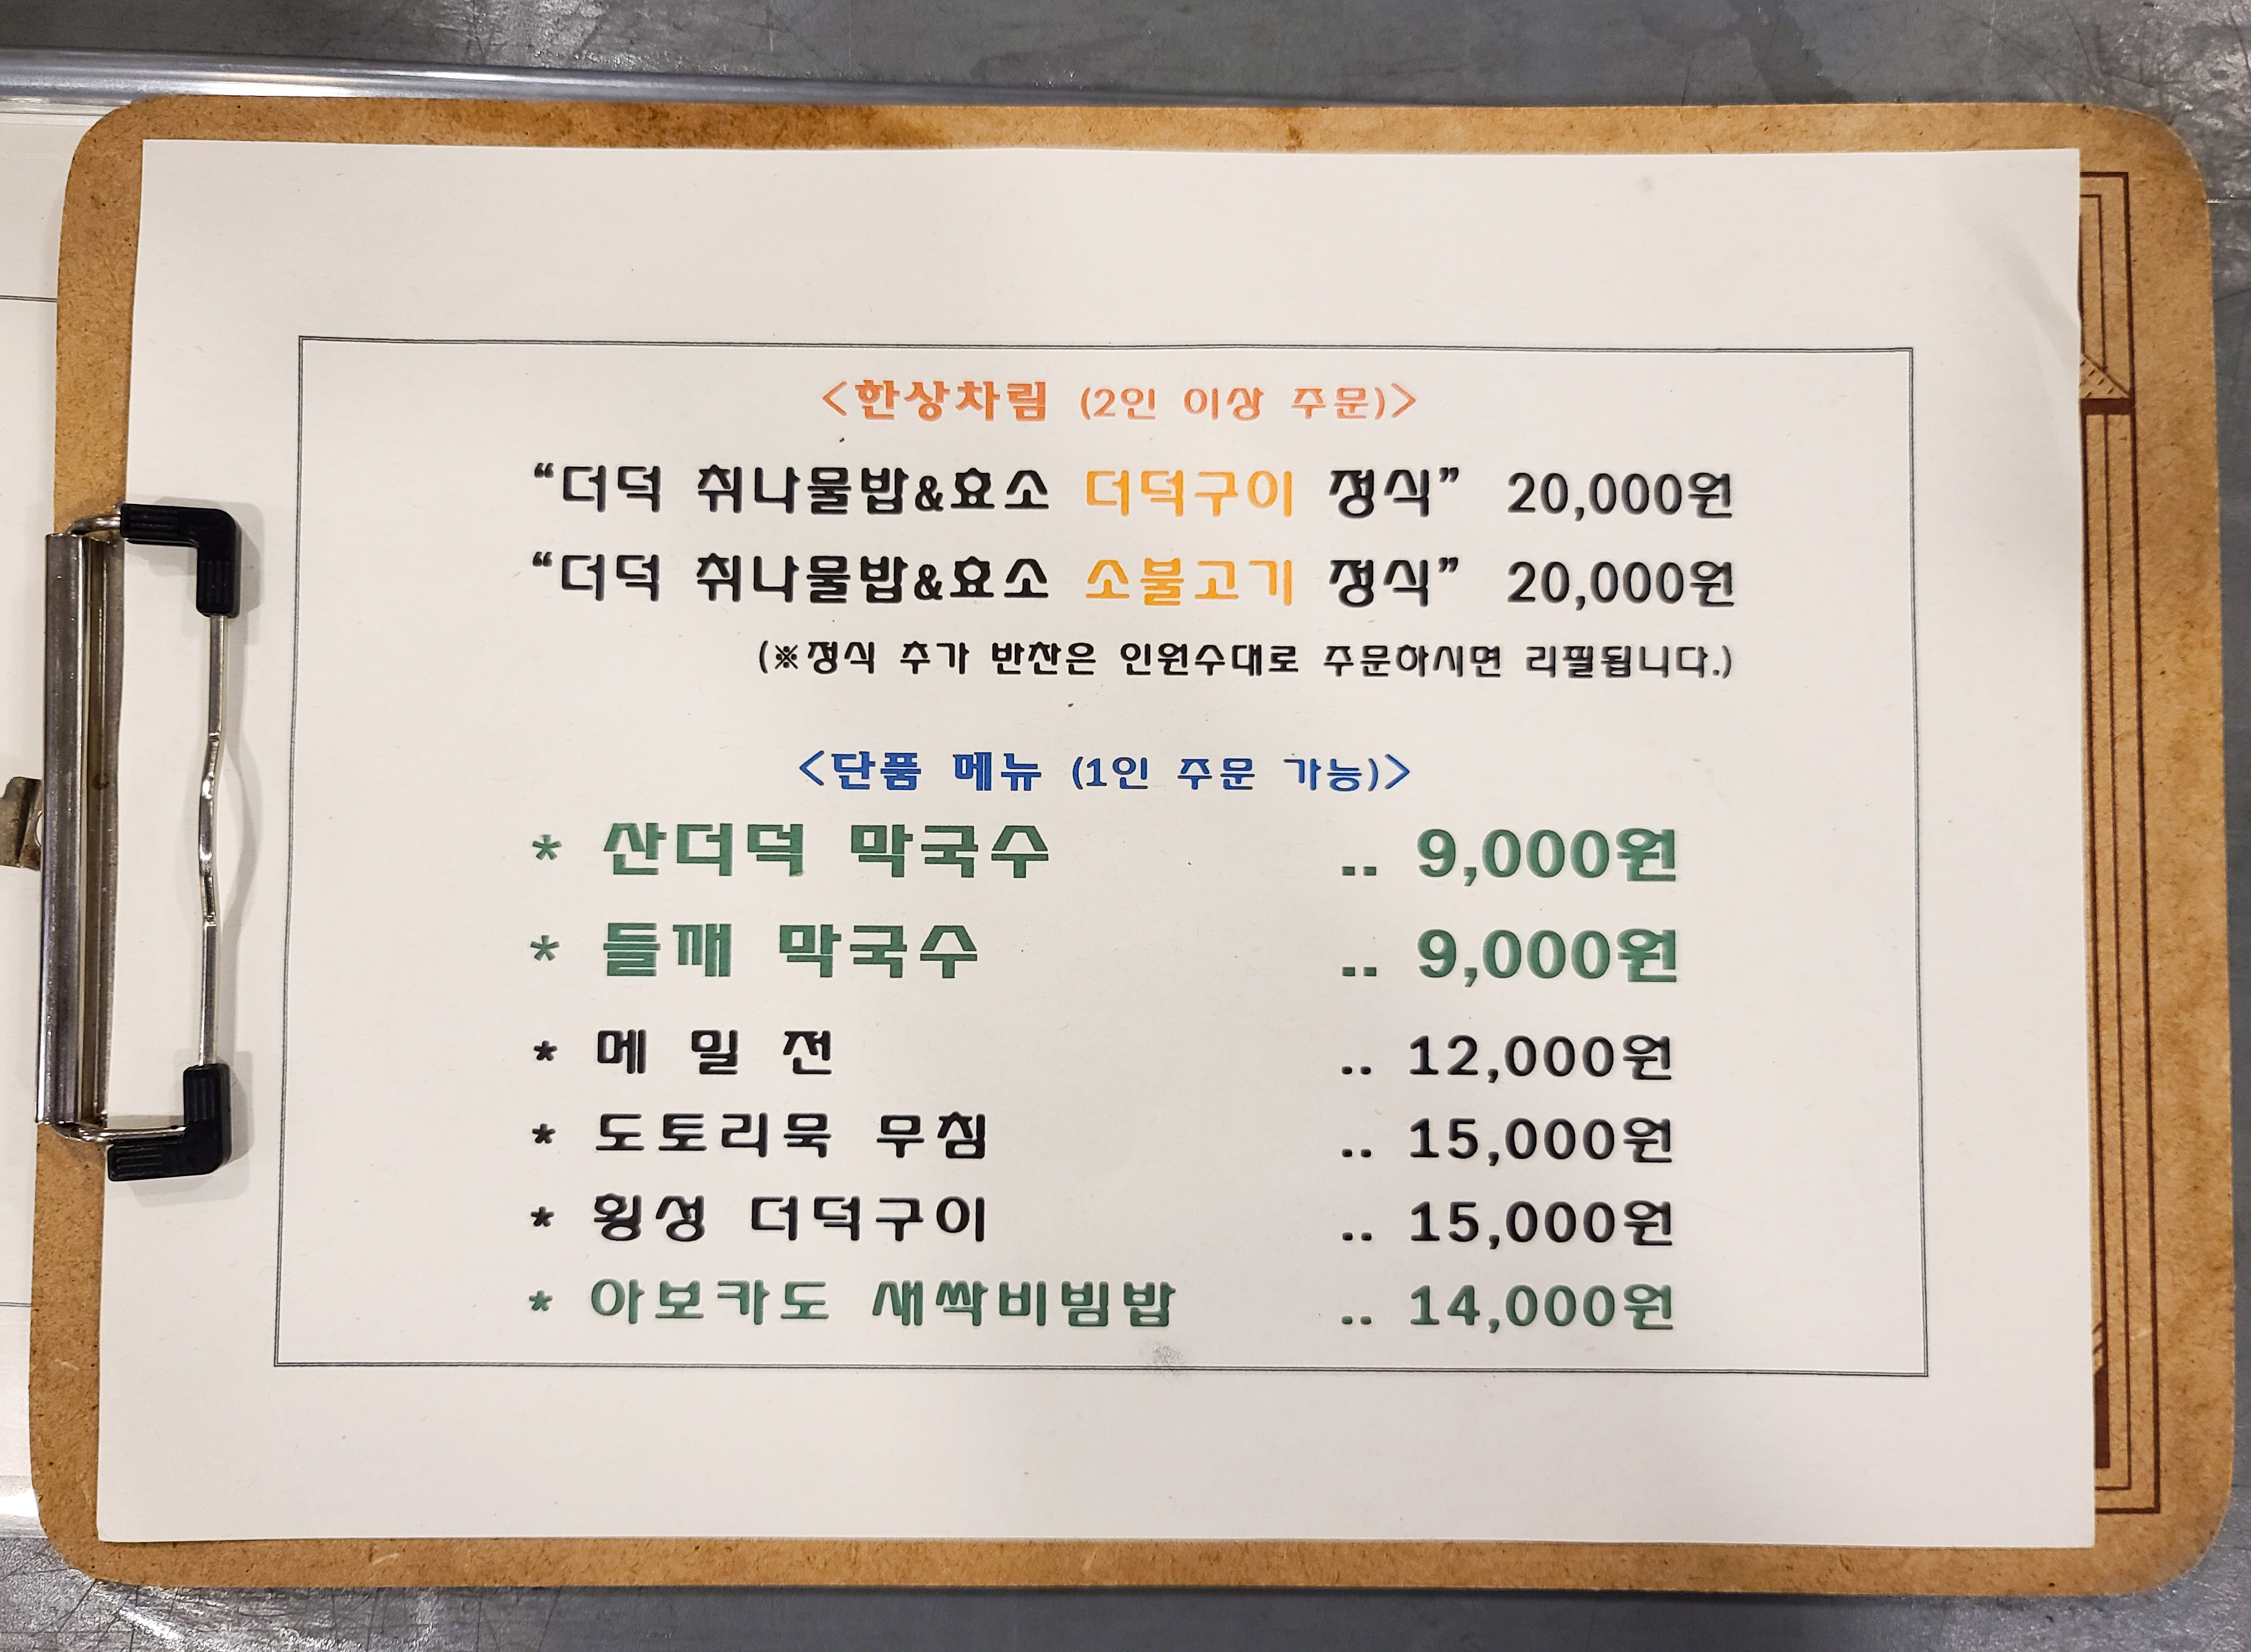 <한상차림 (2인 이상 주문)>
“더덕 취나물밥&효소 더덕구이 정식” 20,000원
“더덕 취나물밥&효소 소불고기 정식” 20,000원
(※정식 추가 반찬은 인원수대로 주문하시면 리필됩니다.)
<단품 메뉴 (1인 주문 가능)>
* 산더덕 막국수 .. 9,000원
* 들깨 막국수 .. 9,000원
* 메 밀 전 .. 12,000원
* 도토리묵 무침 .. 15,000원
* 횡성 더덕구이 .. 15,000원
* 아보카도 새싹비빔밥 .. 14,000원